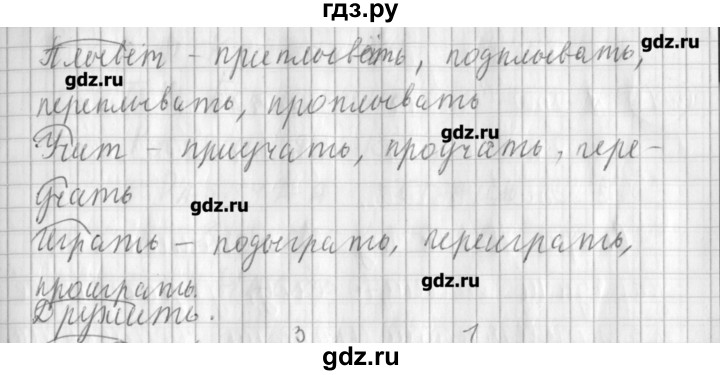 гдз.ру
Плывёт - приплывать, подплывать,
gdz.ru
gdz.ru
переплывать, проплывать
gdz.ru
Учит - приучать, проучать, пере-
учать
gdz.ru
Играть - подыграть, переиграть,
gdz.ru
проиграть.
Дружить.
3 1
gdz.ru